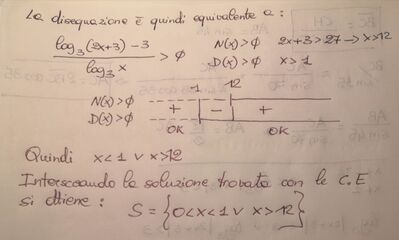 La disequazione è quindi equivalente a:
log₃(2x+3) - 3 / log₃ x > 0
N(x) > 0 2x+3 > 27 → x > 12
D(x) > 0 x > 1
1 12
N(x) > 0
D(x) > 0
+ - +
OK OK
Quindi x < 1 ∨ x > 12
Intersecando la soluzione trovata con le C.E
si ottiene: S = {0 < x < 1 ∨ x > 12}